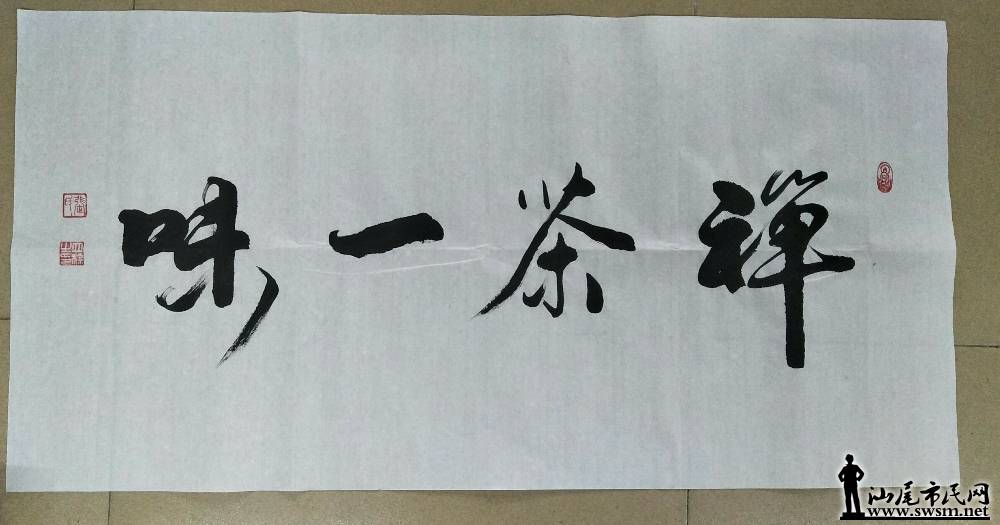 禅茶一味
汕尾市民网
www.swsm.net